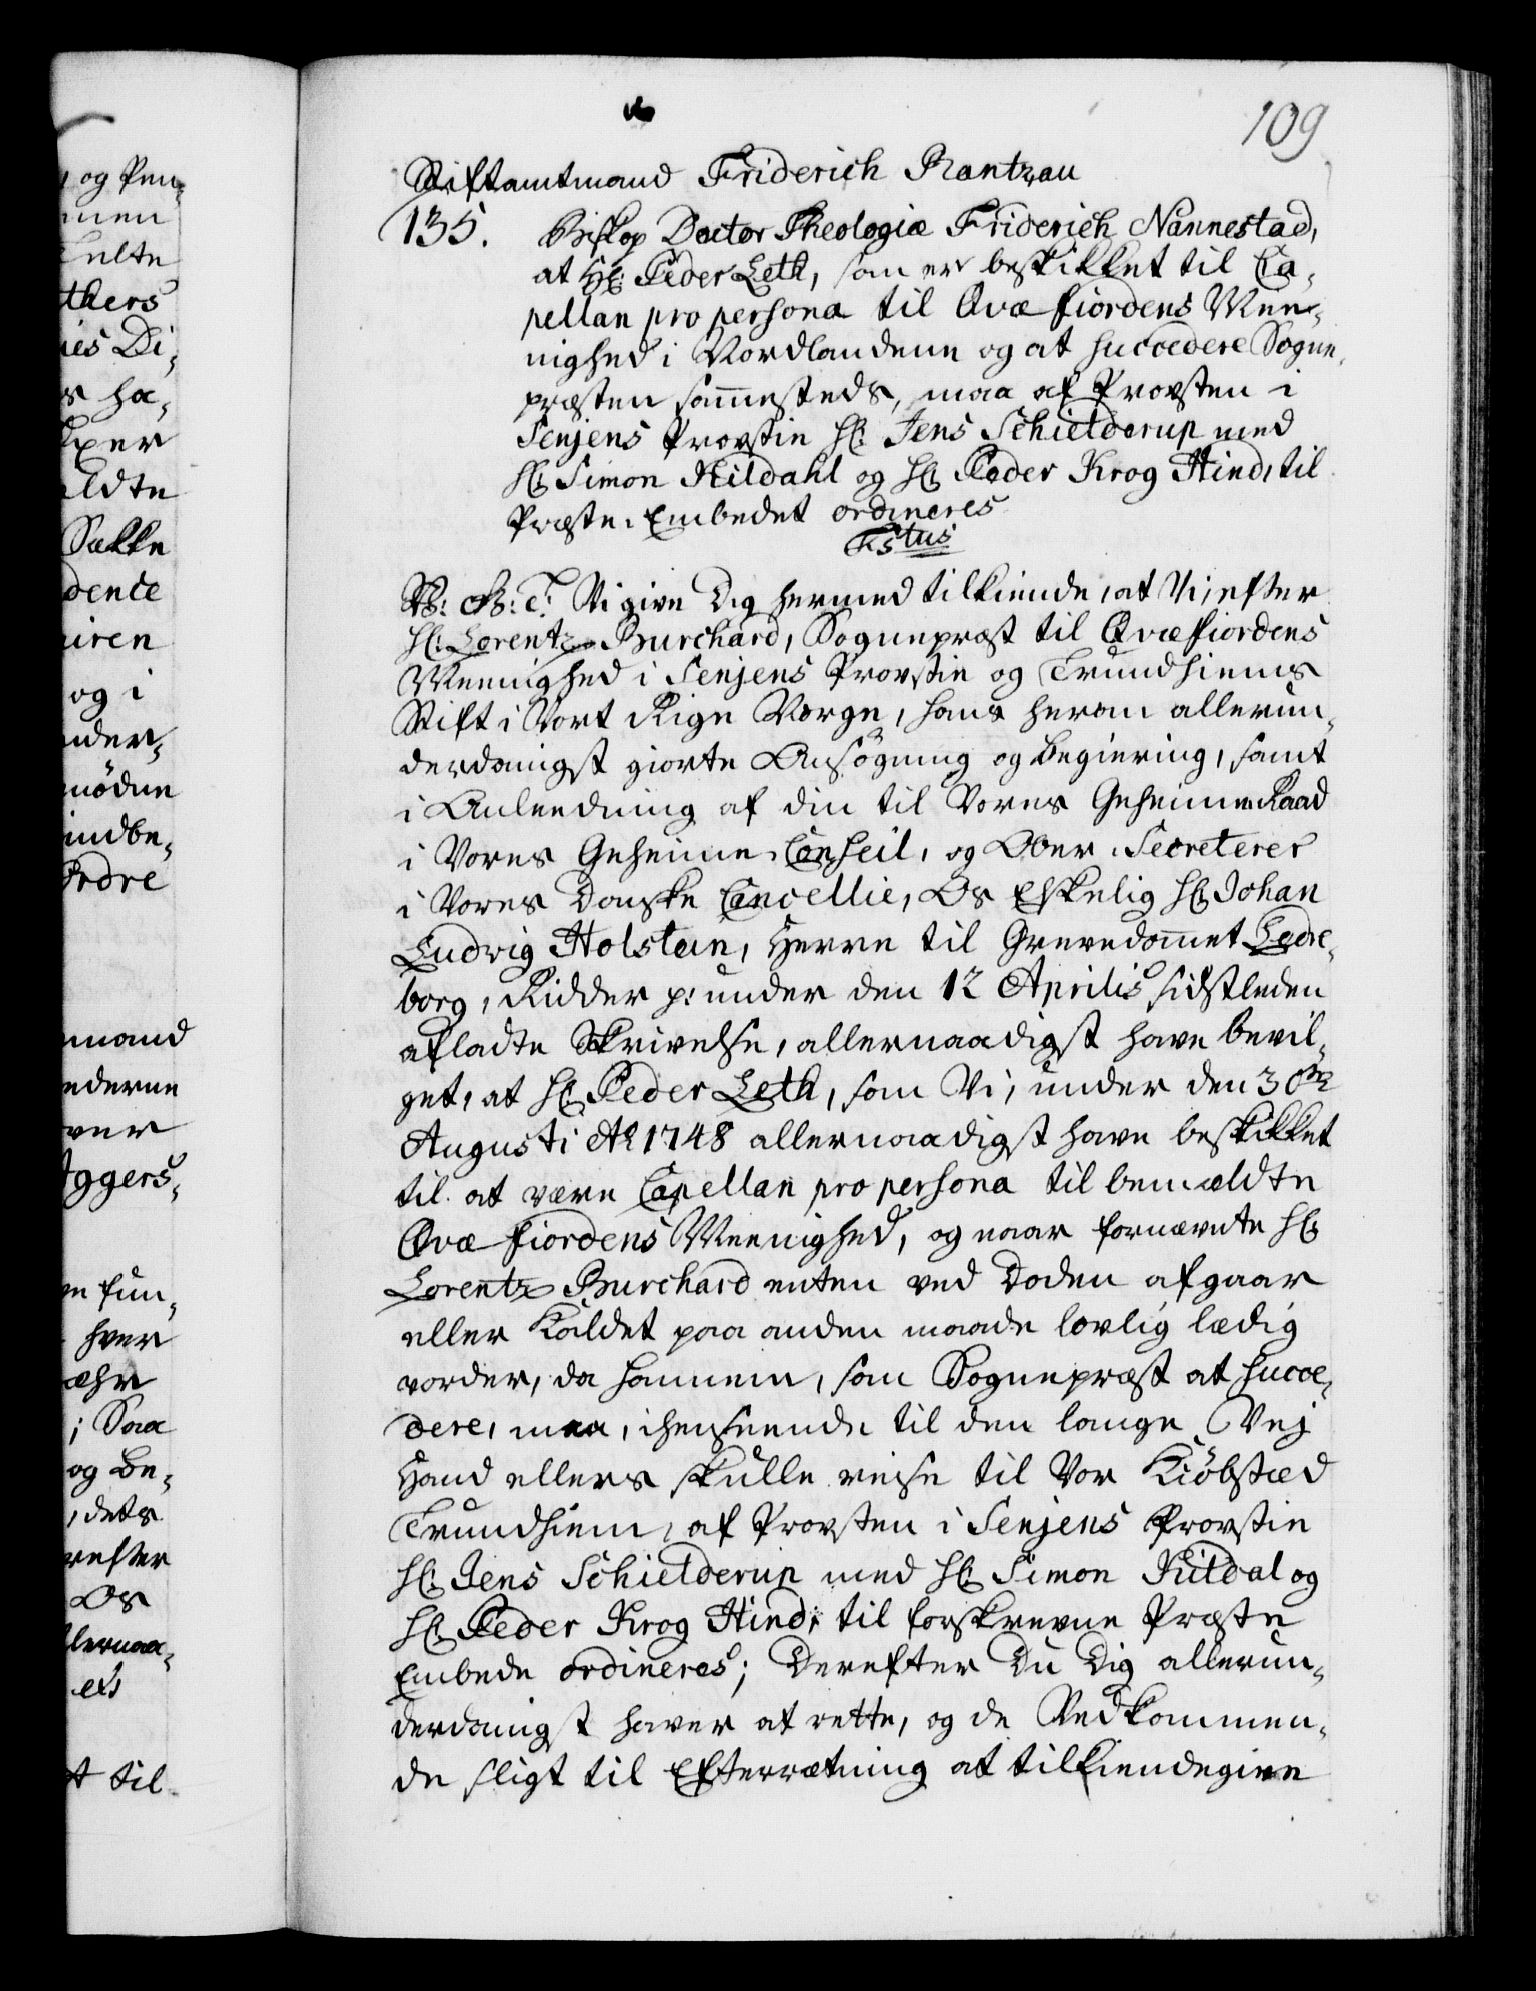 109
Stiftamtmand Friderich Rantzau
135. Biskop Doctor Theologiæ Friderich Nannestad,
at Hr: Peder Leth, som er beskikket til Ca-
pellan pro persona til Qvæfiordens Mee-
nighed i Nordlandene og at succedere Sogne-
præsten sammesteds, maa af Provsten i
Senjens Provstie Hr: Jens Schielderup med
Hr: Simon Kildahl og Hr: Peder Krog Hind, til
Præste-Embedet ordineres
Fstus
Vi give Dig hermed tilkiende, at Vi, efter
Hr: Lorentz Burchard, Sognepræst til Qvæfiordens
Meenighed i Senjens Provstie og Trundhiems
Stift i Vort Rige Norge, hans herom allerun-
derdanigst giorte Ansøgning og begiering, samt
i Anleedning af din til Vores Geheime-Raad
i Vores Geheime-Conseil, og Ober-Secreterer
i Vores Danske Cancellie, Os Elskelig Hr: Johan
Ludvig Holstein, Herre til Grevedommet Ledre-
borg, Ridder p: under den 12 Aprilis sidstleden
afladte Skrivelse, allernaadigst have bevil-
get, at Hr: Peder Leth, som Vi, under den 30te
Augusti Ao 1748 allernaadigst have beskikket
til at være Capellan pro persona til bemældte
Qvæfiordens Meenighed, og naar fornævnte Hr:
Lorentz Burchard enten ved Døden afgaar
eller Kaldet paa anden maade lovlig lædig
vorder, da hannem, som Sognepræst at succe-
dere, maa, i henseende til den lange Vej
Hand ellers skulle reise til Vor Kiøbstæd
Trundhiem, af Provsten i Senjens Provstie
Hr: Jens Schielderup med Hr: Simon Kildal og
Hr: Peder Krog Hind, til forskrevne Præste
Embede ordineres; Derefter Du Dig allerun-
derdanigst haver at rette, og de Vedkommen-
de sligt til Efterrætning at tilkiendegive